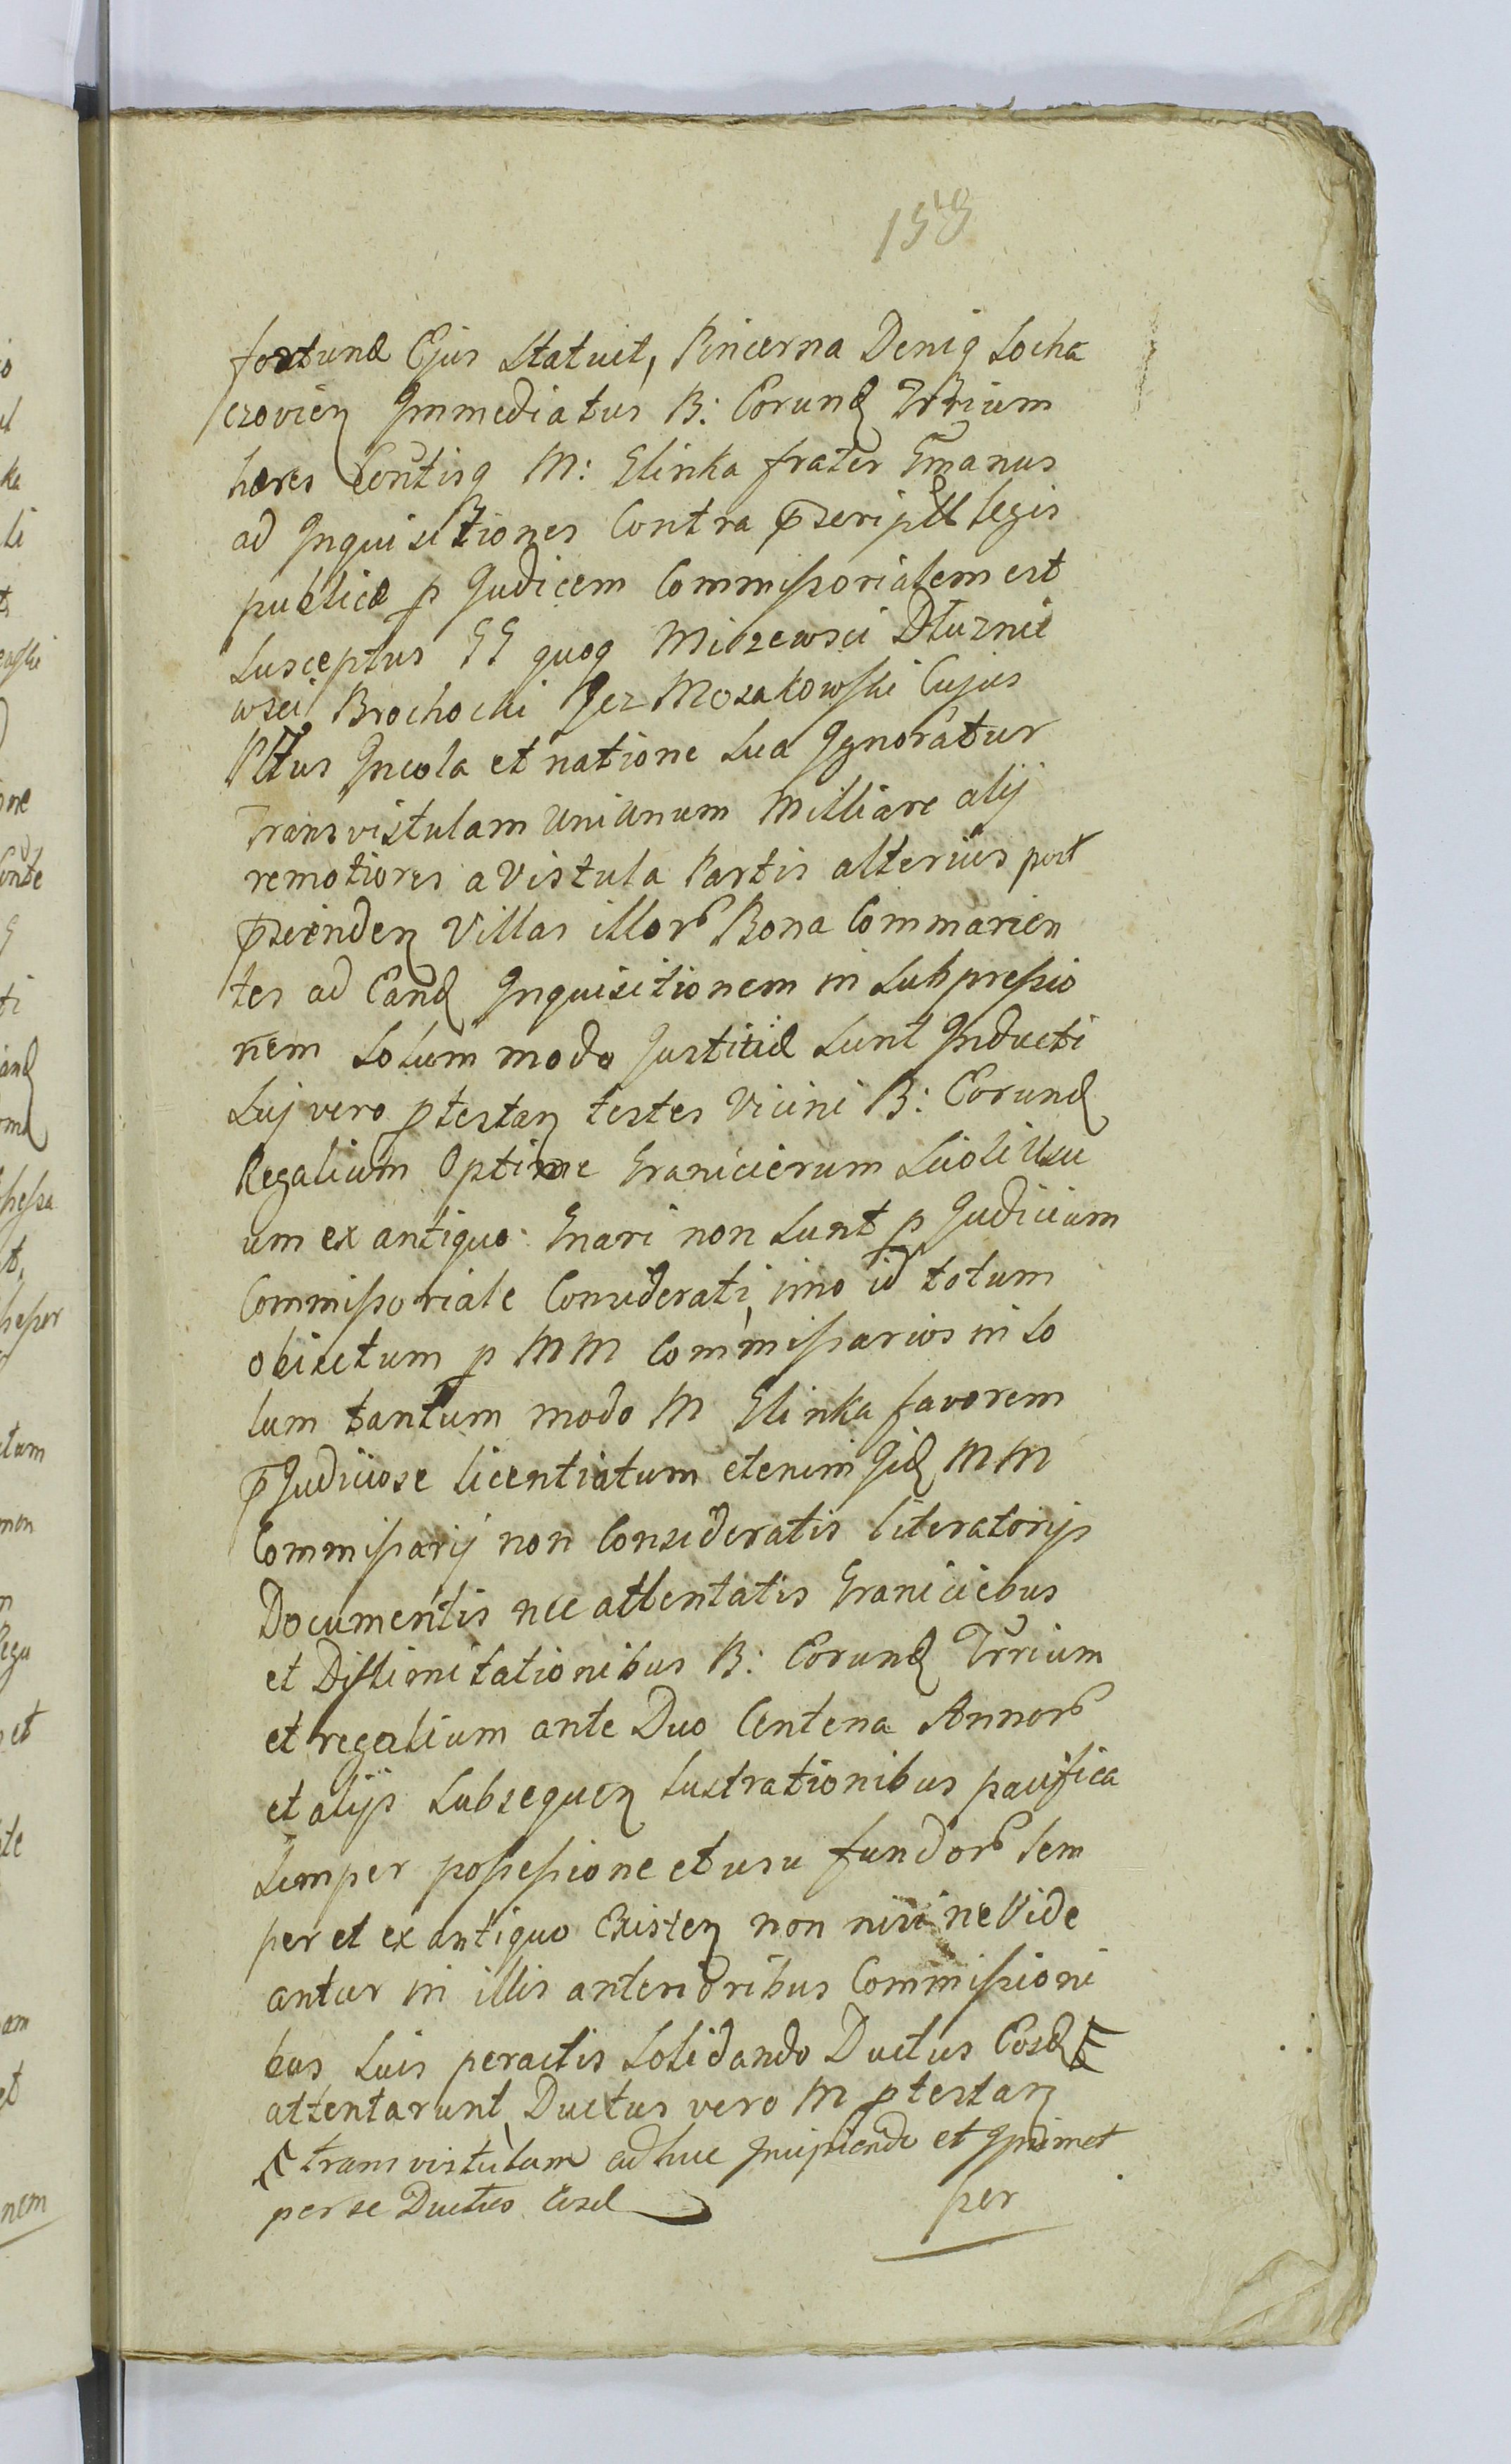 158
fortunæ Ejus Statuit, Pincerna Deniq Socha
czovien Immediatus B: Eorund Trrium
hæres Contisq M: Glinka frater Gmanus
ad Inquisitiones Contra p̄scriptū legis
publicæ p Judicem Commissorialem est
Susceptus GG quoq Miszewsci Dłuznie
wsci Brochocki Jez Mosakowski Cujus
Incola et natione Sua Ignoratur
Transvistulam Uni Unum Milliare alij
remotiores a Vistula Partis alterius post
Villas illor Bona Commarien
tes ad Eand Inquisitionem in Subpressio
nem Solum modo Justitiæ Sunt Inducti
Sui vero ptestan testes Vicini B: Eorund
Regalium Optime Granicierum Scioli Usu
um ex antiquo Gnari non Sunt p Judicium
Commissoriale Considerati, imo id totum
obiectum p MM Commissarios in So
lum tantum modo M Glinka favorem
p̄Judiciose licentiatum etenim Iid MM
Commissarij non Consideratis literatorijs
Documentis nec attentatis Graniciebus
et Dislimitationibus B: Eorund Trrium
et regalium ante Duo Centena Annor
et alijs Subsequen Lustrationibus pacifica
Semper possessione et usu fundor Sem
per et ex antiquo Existen non nisi ne Vide
antur in illis anterioribus Commissioni
bus Suis peractis Solidando Ductus Eosd
attentarunt Ductus vero M ptestan
trans vistulam adhuc Incipiendo et Ipsimet
per se Ductus
per